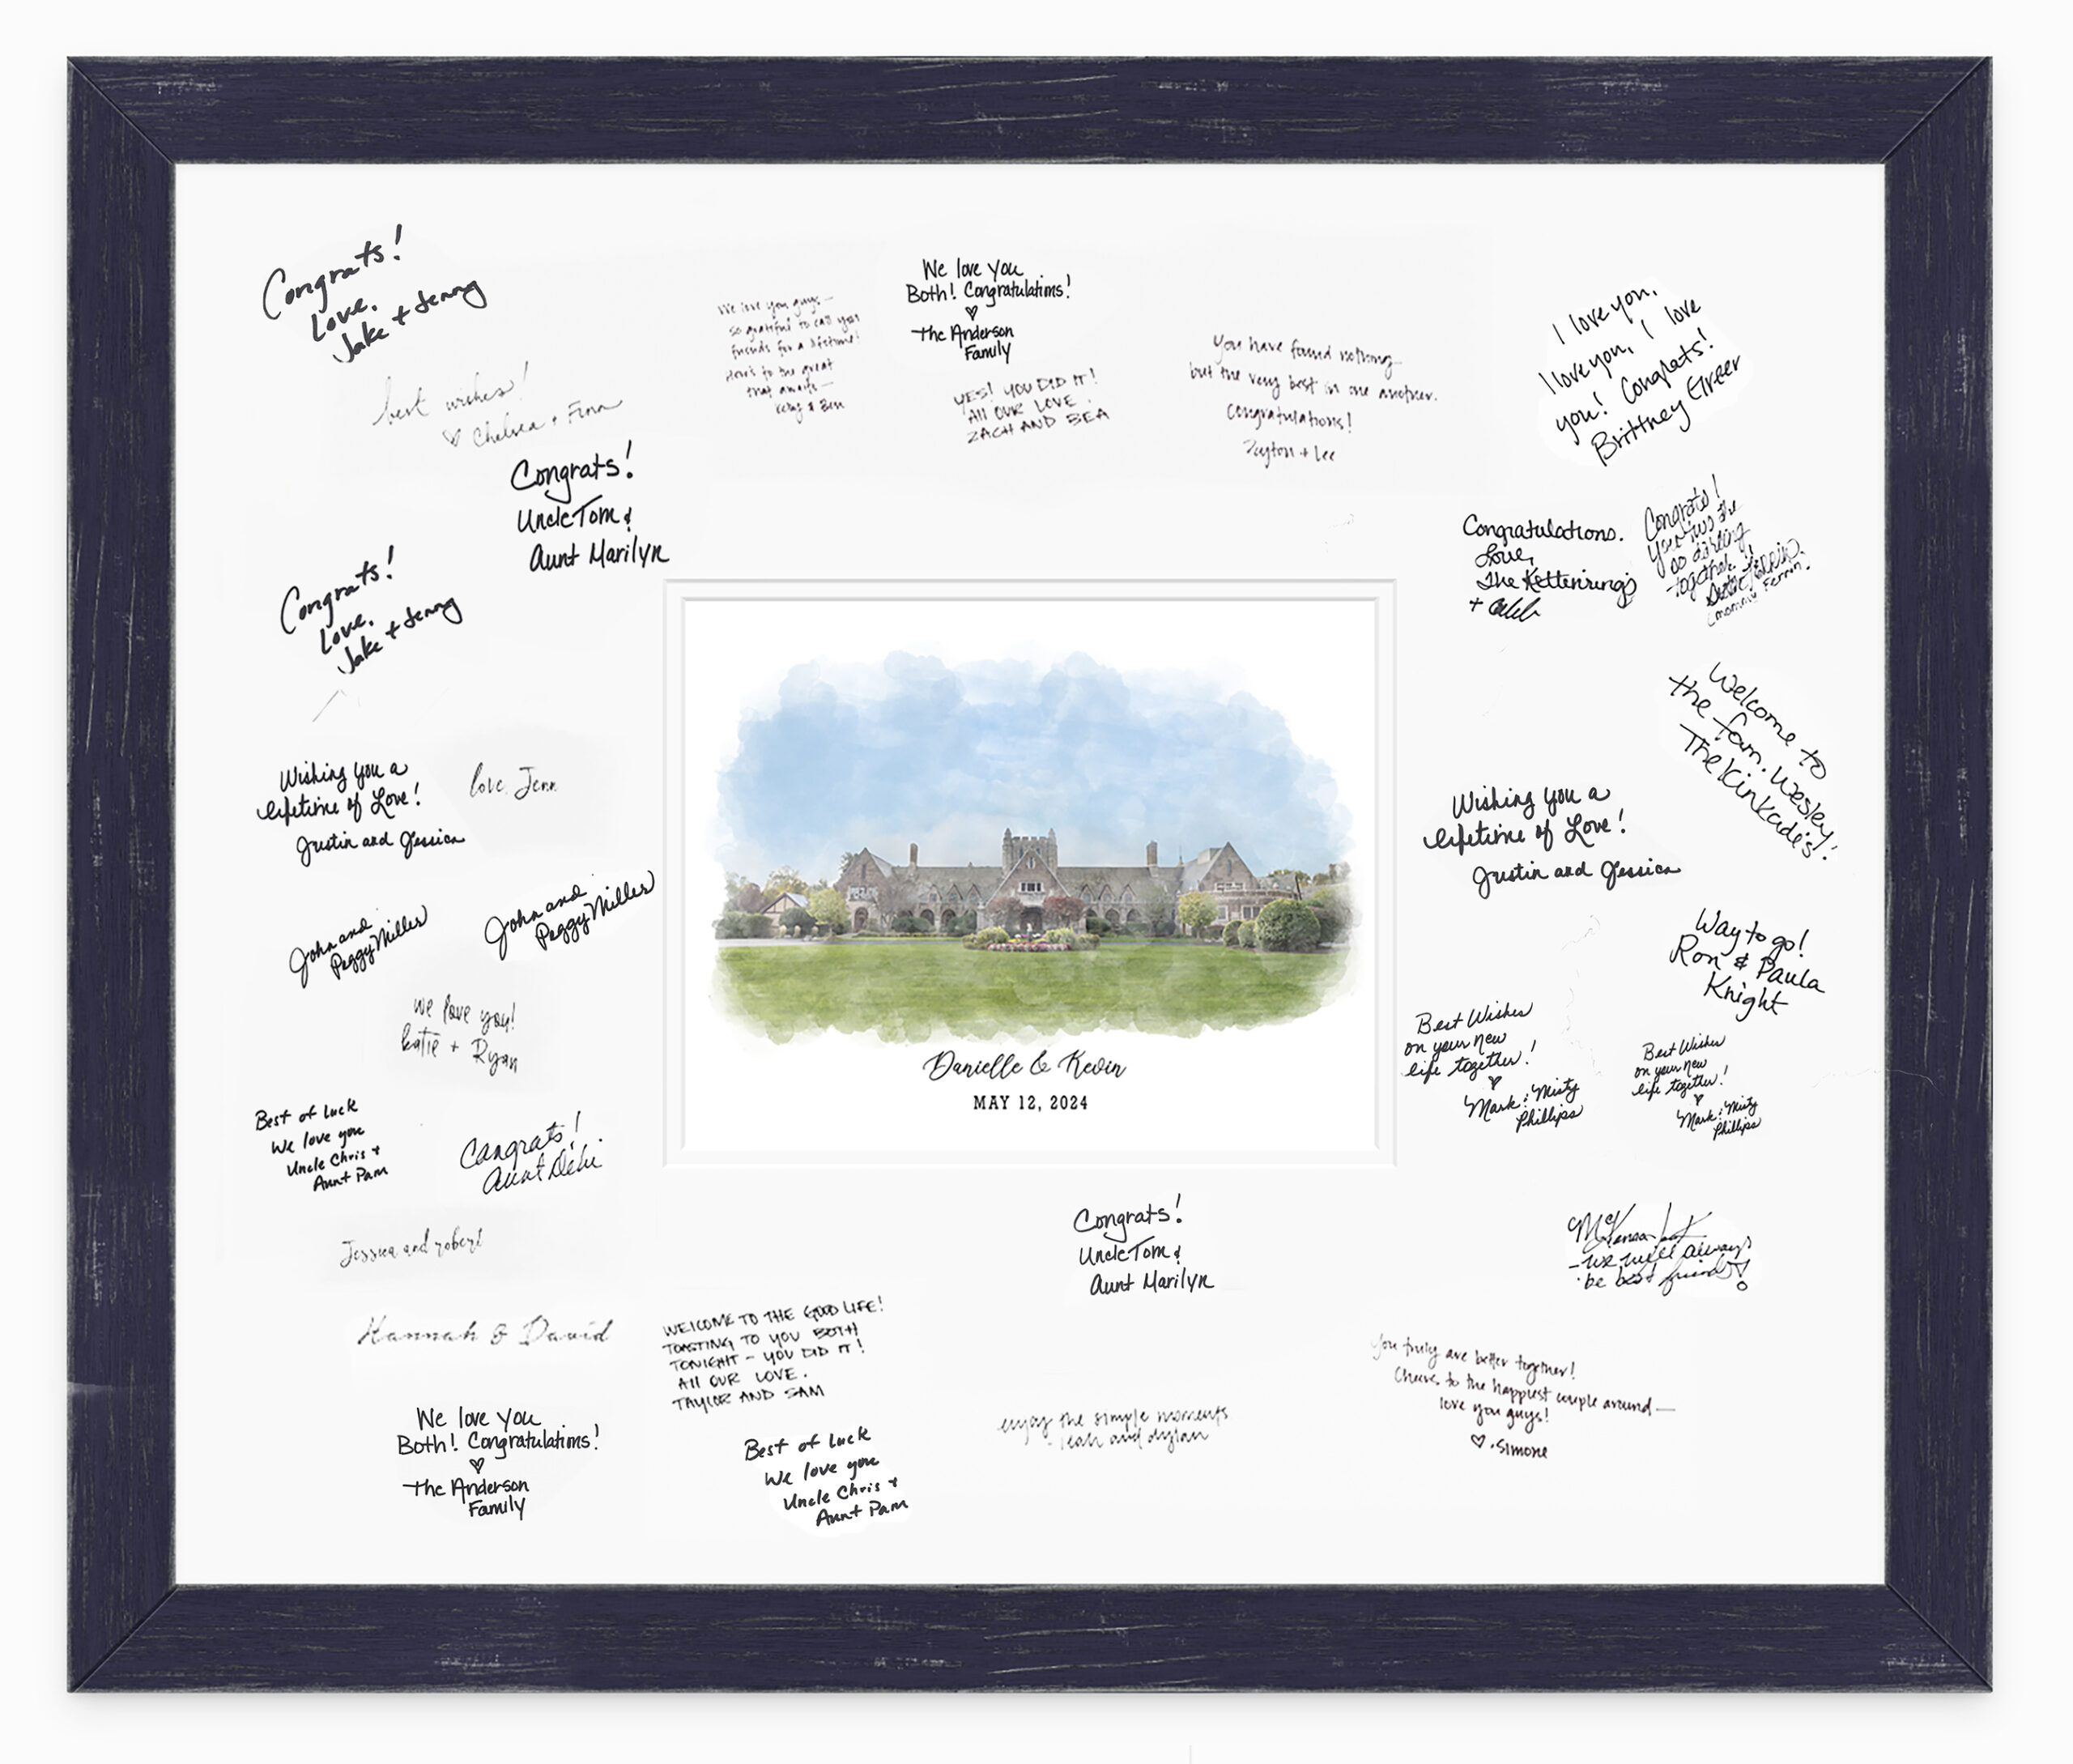 Congrats!
Love,
Jake + Jenny
best wishes!
♡ Chelsea + Finn
Congrats!
Uncle Tom &
Aunt Marilyn
We love you guys—
so grateful to call you
friends for a lifetime!
Here's to the great
that awaits—
& Ben
We love you
Both! Congratulations!
♡
The Anderson
Family
YES! YOU DID IT!
All OUR LOVE.
ZACH AND BEA
You have found nothing
but the very best in one another.
Congratulations!
Payton + Lee
I love you,
I love you, I love
you! Congrats!
Brittney Greer
Congratulations.
Love,
The Kettenring's
+ Caleb
Congrats!
You two are
so darling
together.
Congrats!
Love,
Jake + Jenny
Welcome to
the fam. Wesley!
The Kinkade's!
Wishing you a
lifetime of Love!
Justin and Jessica
love, Jenn
Wishing you a
lifetime of Love!
Justin and Jessica
John and
Peggy Miller
John and
Peggy Miller
Way to go!
Ron & Paula
Knight
we love you!
Katie + Ryan
Best Wishes
on your new
life together!
♡
Mark & Misty
Phillips
Best Wishes
on your new
life together!
♡
Mark & Misty
Phillips
Danielle & Kevin
MAY 12, 2024
Best of luck
We love you
Uncle Chris +
Aunt Pam
Congrats!
Aunt Debi
Jessica and robert
Congrats!
Uncle Tom &
Aunt Marilyn
-we will always
be best friends!
Hannah & David
WELCOME TO THE GOOD LIFE!
TOASTING TO YOU BOTH
TONIGHT - YOU DID IT!
All OUR LOVE.
TAYLOR AND SAM
You truly are better together!
Cheers to the happiest couple around—
love you guys!
♡ Simone
enjoy the simple moments
- leah and dylan
We love you
Both! Congratulations!
♡
The Anderson
Family
Best of luck
We love you
Uncle Chris +
Aunt Pam